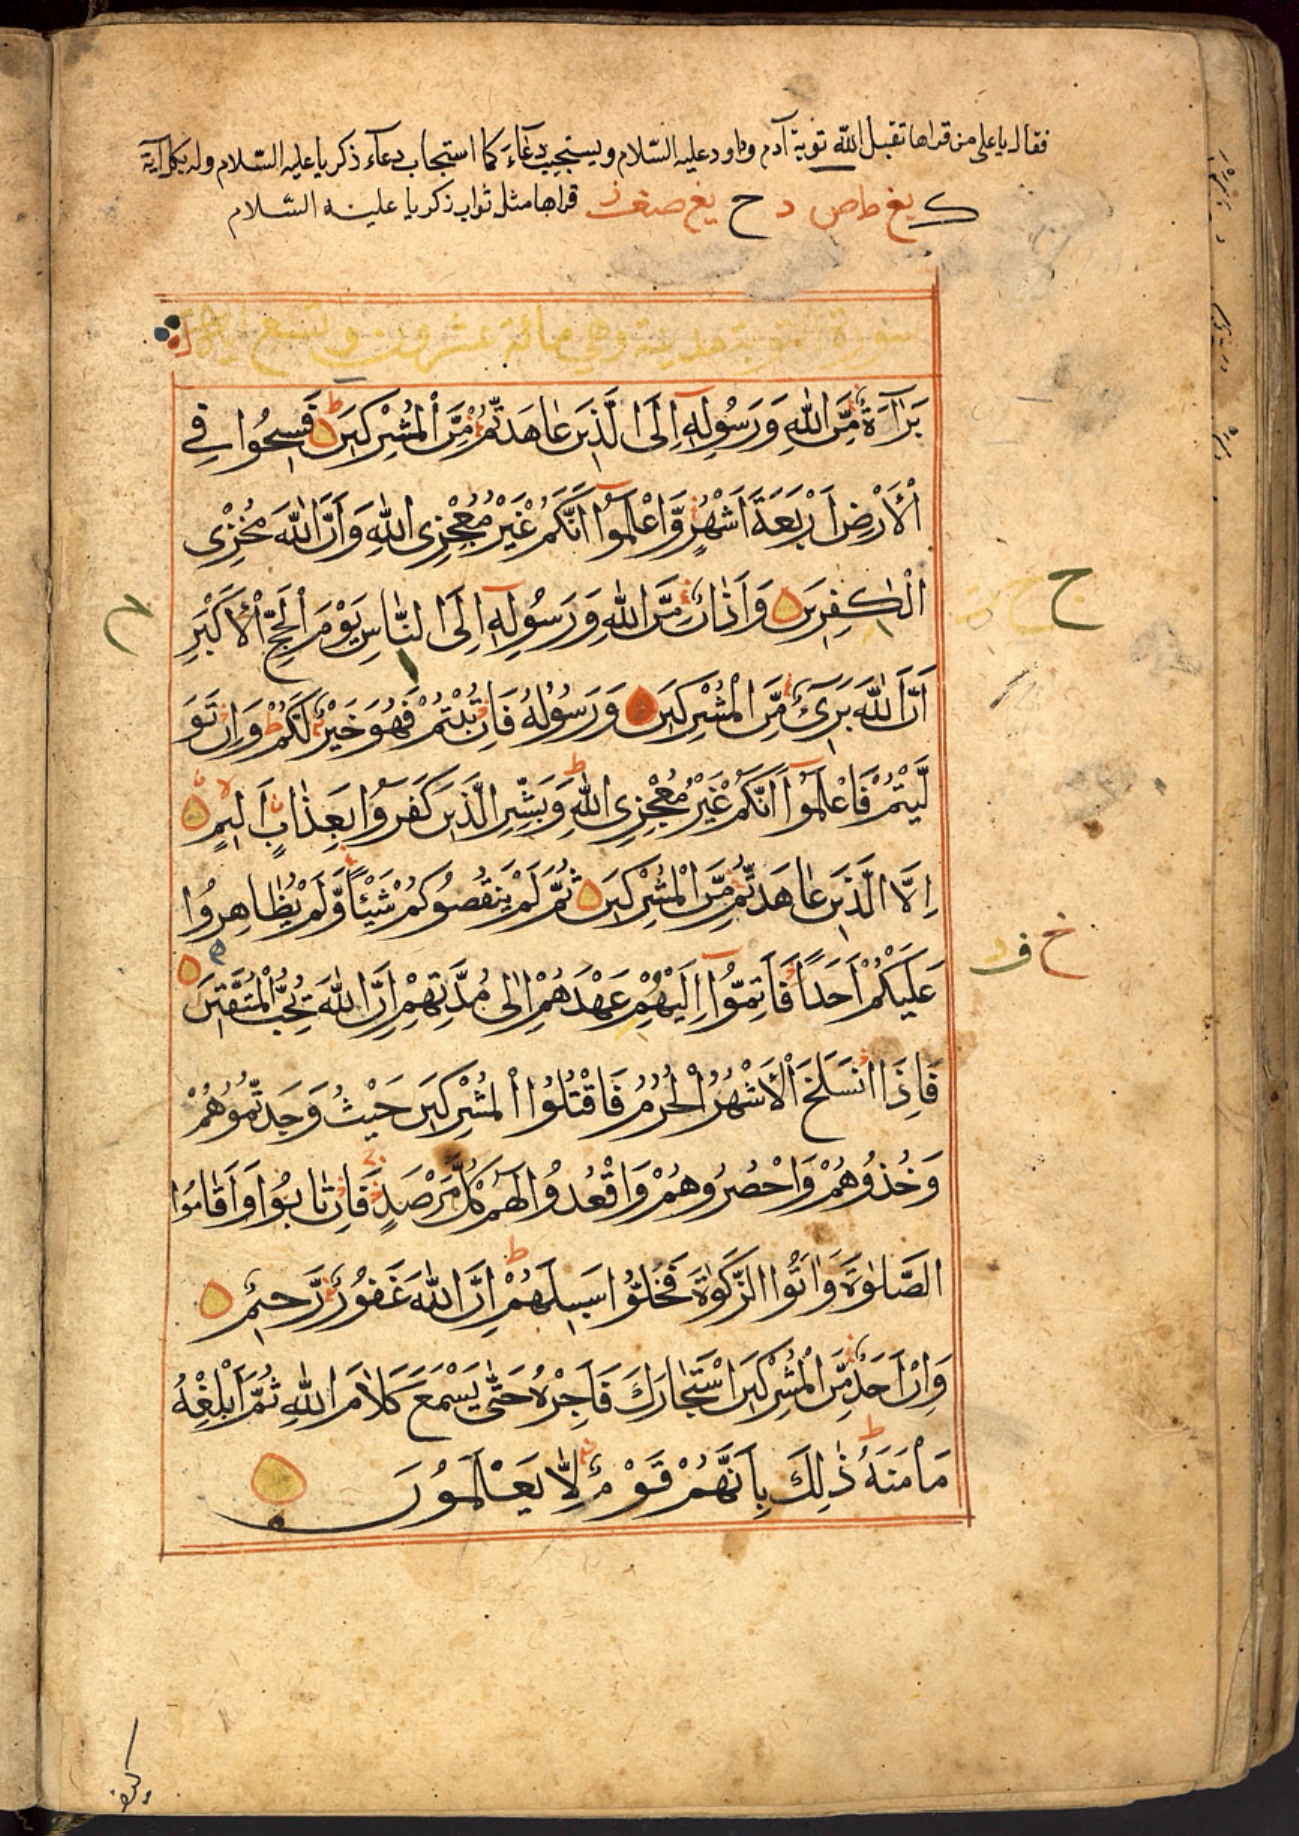 فقال يا علي من قراها تقبل الله توبة آدم وداود عليه السّلام ويستجيب دعآءَ كما استجاب دعآء ذكريا عليه السّلام وله بكل آية
قراها مثل ثواب ذكريا عليه السّلام
سورة التوبة مدينة وهي مائة عشرون وتسع اية
بَرَآءَةٌ مِّنَ اللّٰهِ وَرَسُولِهٖٓ اِلَى الَّذِينَ عَاهَدْتُّمْ مِّنَ الْمُشْرِكِينَ فَسِيحُوا فِي
الْاَرْضِ اَرْبَعَةَ اَشْهُرٍ وَّاعْلَمُوٓا اَنَّكُمْ غَيْرُ مُعْجِزِى اللّٰهِ وَاَنَّ اللّٰهَ مُخْزِى
الْكٰفِرِينَ وَاَذَانٌ مِّنَ اللّٰهِ وَرَسُولِهٖٓ اِلَى النَّاسِ يَوْمَ الْحَجِّ الْاَكْبَرِ
اَنَّ اللّٰهَ بَرِىٓءٌ مِّنَ الْمُشْرِكِينَ وَرَسُولُهُ فَاِنْ تُبْتُمْ فَهُوَ خَيْرٌ لَّكُمْ وَاِنْ تَوَ
لَّيْتُمْ فَاعْلَمُوٓا اَنَّكُمْ غَيْرُ مُعْجِزِى اللّٰهِ وَبَشِّرِ الَّذِينَ كَفَرُوا بِعَذَابٍ اَلِيمٍ
اِلَّا الَّذِينَ عَاهَدْتُّمْ مِّنَ الْمُشْرِكِينَ ثُمَّ لَمْ يَنْقُصُوكُمْ شَيْئًا وَّلَمْ يُظَاهِرُوا
عَلَيْكُمْ اَحَدًا فَاَتِمُّوٓا اِلَيْهِمْ عَهْدَهُمْ اِلٰى مُدَّتِهِمْ اِنَّ اللّٰهَ يُحِبُّ الْمُتَّقِينَ
فَاِذَا انْسَلَخَ الْاَشْهُرُ الْحُرُمُ فَاقْتُلُوا الْمُشْرِكِينَ حَيْثُ وَجَدْتُّمُوهُمْ
وَخُذُوهُمْ وَاحْصُرُوهُمْ وَاقْعُدُوا لَهُمْ كُلَّ مَرْصَدٍ فَاِنْ تَابُوا وَاَقَامُوا
الصَّلٰوةَ وَاٰتَوُا الزَّكٰوةَ فَخَلُّوا سَبِيلَهُمْ اِنَّ اللّٰهَ غَفُورٌ رَّحِيمٌ
وَاِنْ اَحَدٌ مِّنَ الْمُشْرِكِينَ اسْتَجَارَكَ فَاَجِرْهُ حَتّٰى يَسْمَعَ كَلَامَ اللّٰهِ ثُمَّ اَبْلِغْهُ
مَاْمَنَهُ ذٰلِكَ بِاَنَّهُمْ قَوْمٌ لَّا يَعْلَمُونَ
كيف